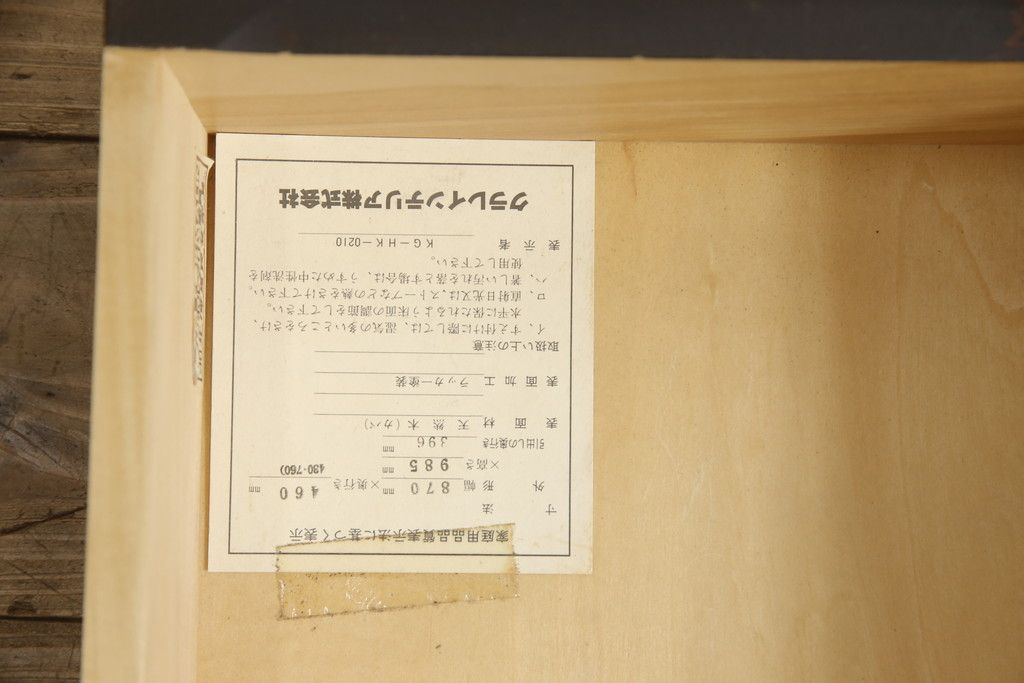 家庭用品品質表示法に基づく表示
寸法
外形 幅 870 mm ×奥行き 460 mm
×高さ 985 mm 430-760)
引出しの奥行き 396 mm
表面材 天然木(カバ)
表面加工 ラッカー塗装
取扱い上の注意
イ、すえ付けに際しては、湿気の多いところをさけ、
水平に保たれるよう床面の調節をして下さい。
ロ、直射日光又は、ストーブなどの熱をさけて下さい。
ハ、著しい汚れを落とす場合は、うすめた中性洗剤を
使用して下さい。
表示者 KG-HK-0210
クラレインテリア株式会社